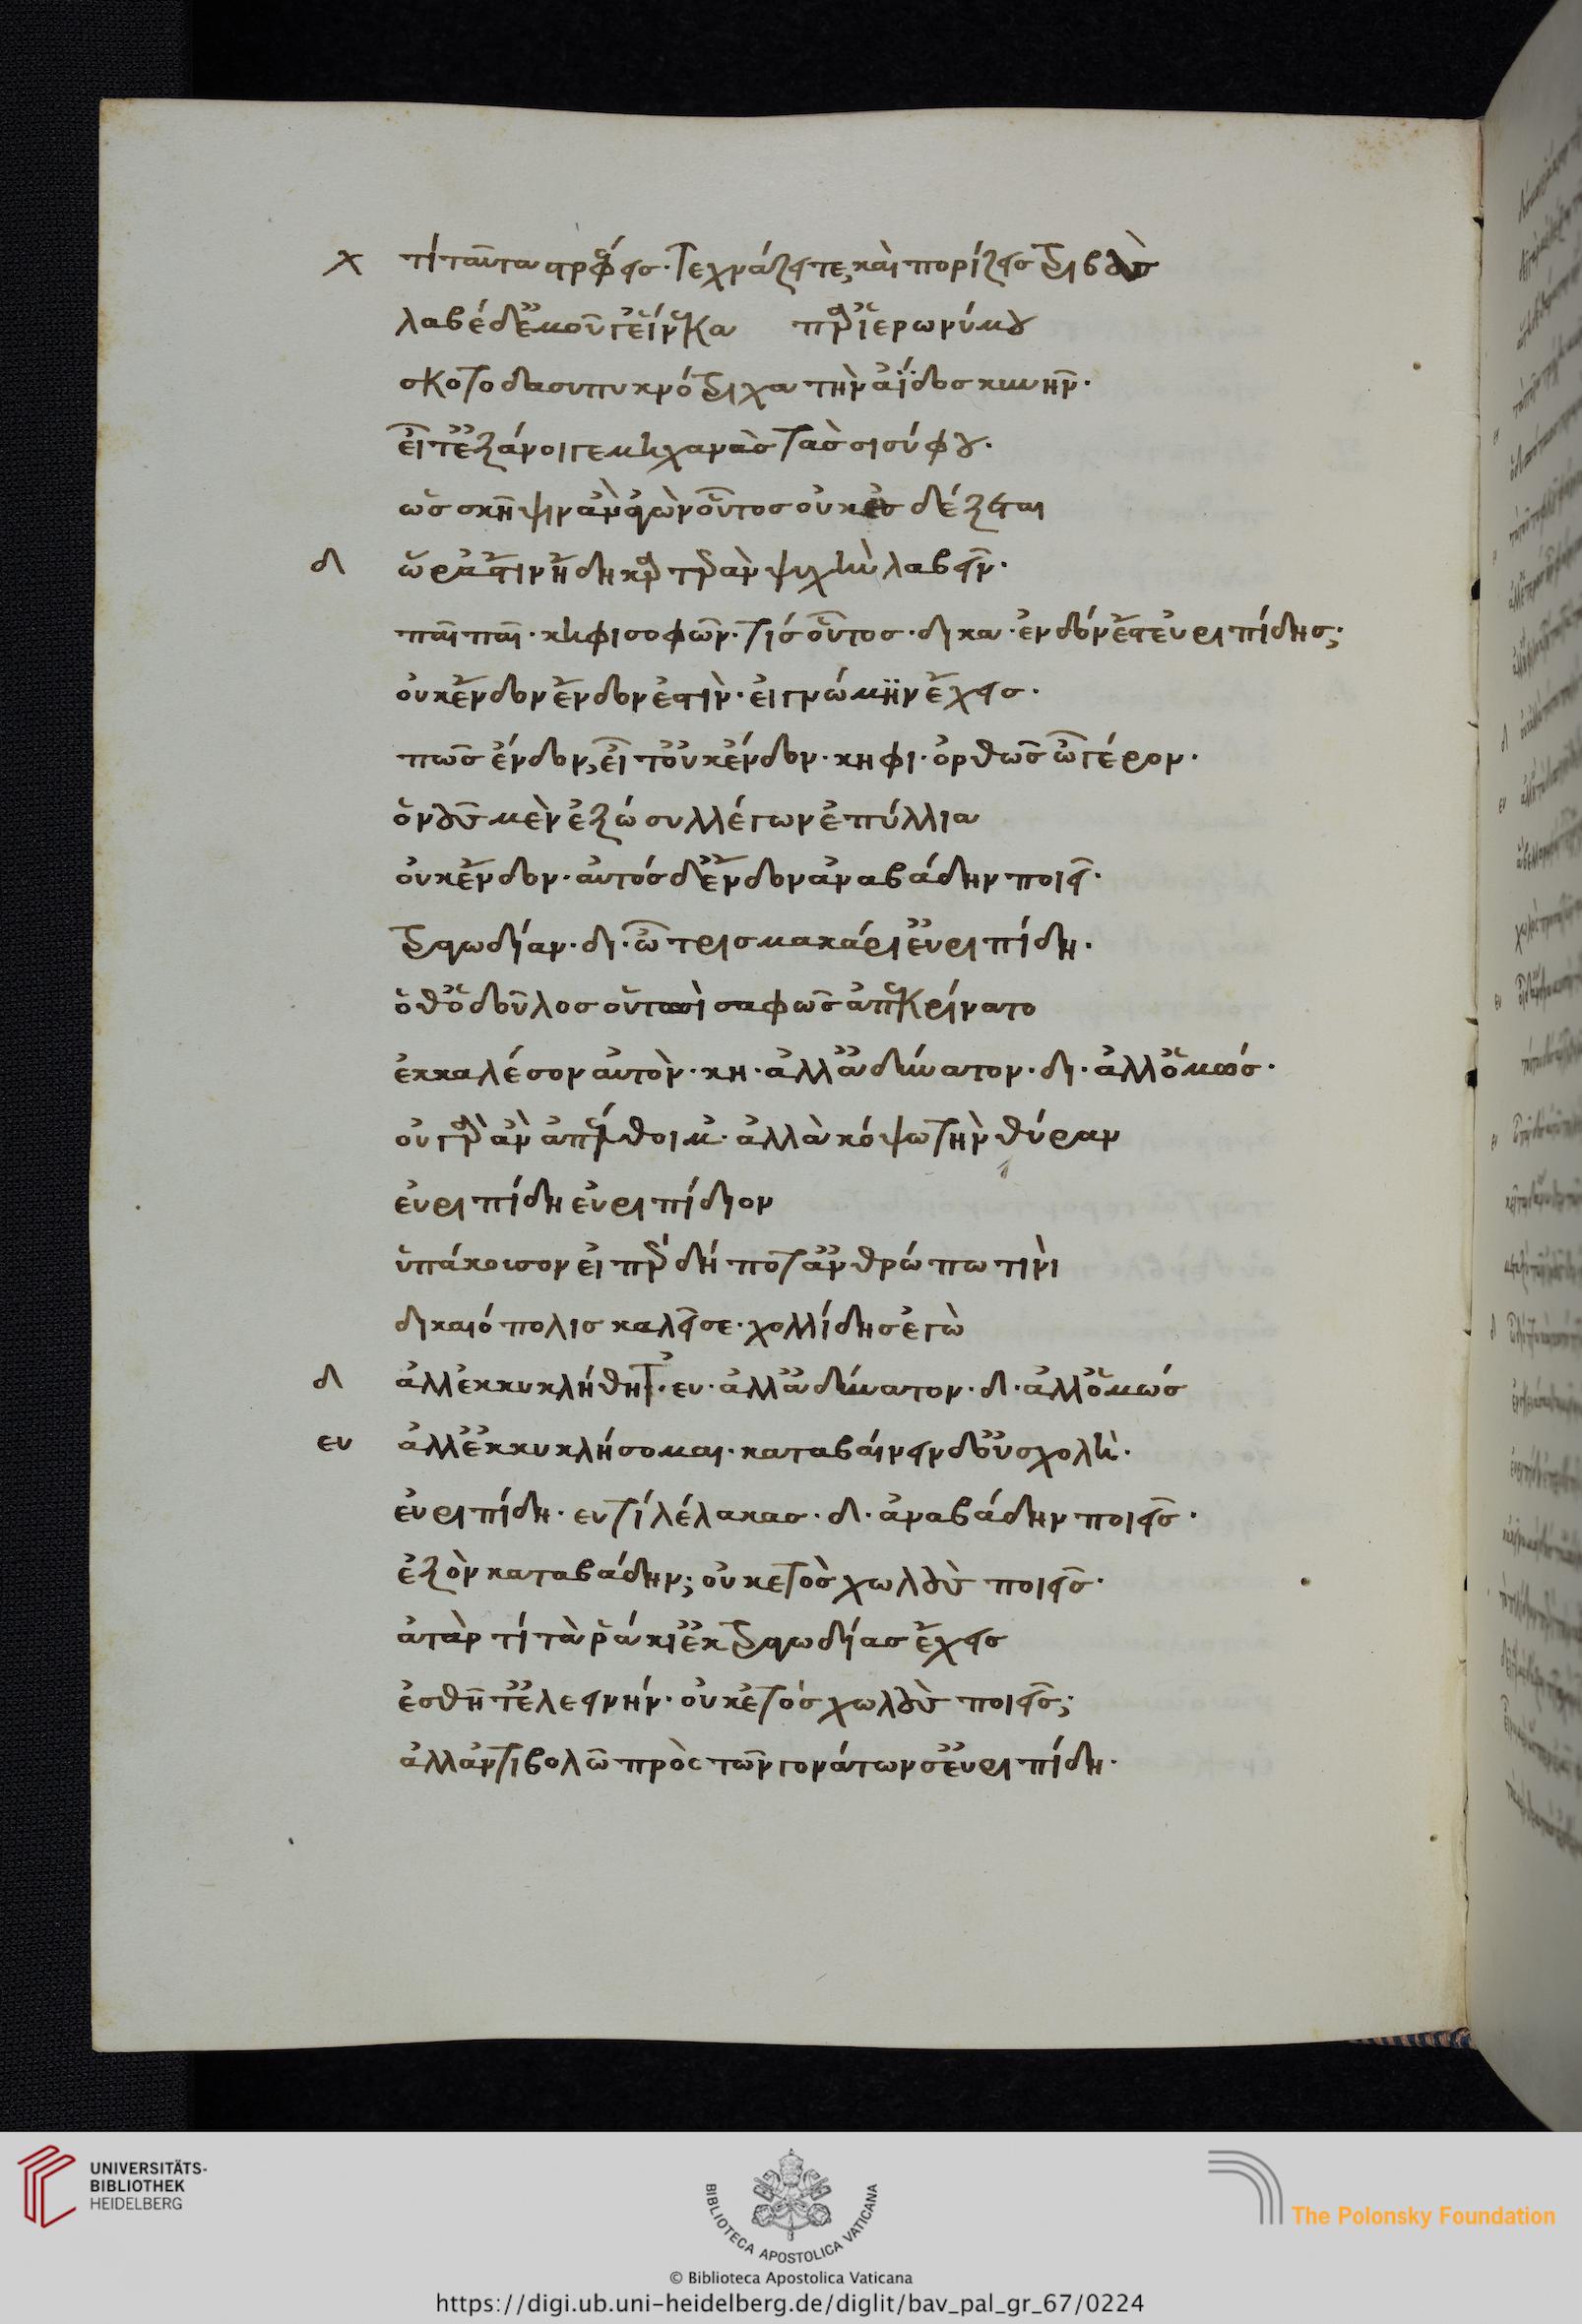 χ τί ταῦτα στρέφεις· τεχνάζεις τε, καὶ πορίζεις τριβὰς
λαβὲ δ' ἐμοῦ γ' ἕνεκα παρ' ἱερωνύμου
σκοτοδασυπυκνότριχα τὴν ἄϊδος κυνῆν·
εἶτ' ἐξάνοιγε μηχανὰς τὰς σισύφου·
ὡς σκῆψιν ἀγὼν οὗτος οὐκ ἐσδέξεται
δ ὥρα ἐστὶν ἤδη καρτερὰν ψυχὴν λαβεῖν·
παῖ παῖ· κηφισοφῶν· τίς οὗτος· δικα· ἔνδόν ἐστ' εὐριπίδης;
οὐκ ἔνδον ἔνδον ἐστὶν· εἰ γνώμην ἔχεις·
πῶς ἔνδον, εἶτ' οὐκ ἔνδον· κηφι· ὀρθῶς ὦ γέρον·
ὁ νοῦς μὲν ἔξω συλλέγων ἐπύλλια
οὐκ ἔνδον· αὐτός δ' ἔνδον ἀναβάδην ποιεῖ·
τραγωδίαν· δι· ὦ τρισμακάρι' εὐριπίδη·
ὅθ' ὁ δοῦλος οὑτωσὶ σαφῶς ἀπεκρίνατο
ἐκκαλέσον αὐτὸν· κη· ἀλλ' ἀδύνατον· δι· ἀλλ' ὅμως·
οὐ γὰρ ἂν ἀπέλθοιμ'· ἀλλὰ κόψω τὴν θύραν
εὐριπίδη εὐριπίδιον
ὑπάκουσον εἰ πέρ δή ποτ' ἀνθρώπω τινὶ
δικαιόπολις καλεῖ σε· χολλίδης ἐγὼ
δ ἀλλ' ἐκκυκλήθητ'· ευ· ἀλλ' ἀδύνατον· δ· ἀλλ' ὅμως
ευ ἀλλ' ἐκκυκλήσομαι· καταβαίνειν δ' οὐ σχολὴ·
εὐριπίδη· ευ τί λέλακας· δ· ἀναβάδην ποιεῖς·
ἐξὸν καταβάδην; οὐκ ἐτὸς χωλοὺς ποιεῖς·
ἀτὰρ τί τὰ ῥάκι' ἐκ τραγωδίας ἔχεις
ἐσθῆτ' ἐλεεινήν· οὐκ ἐτός χωλοὺς ποιεῖς;
ἀλλ' ἀντιβολῶ πρὸς τῶν γονάτων σ' εὐριπίδη·
UNIVERSITÄTS-
BIBLIOTHEK
HEIDELBERG
BIBLIOTECA APOSTOLICA VATICANA
The Polonsky Foundation
© Biblioteca Apostolica Vaticana
https://digi.ub.uni-heidelberg.de/diglit/bav_pal_gr_67/0224